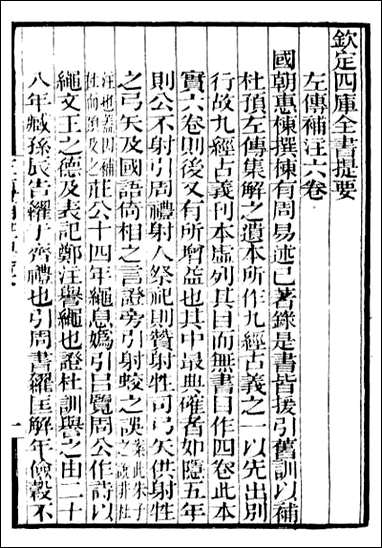 欽定四庫全書提要
左傳補注六卷
國朝惠棟撰棟有周易述已著錄是書皆援引舊訓以補
杜預左傳集解之遺本所作九經古義之一以先出別
行故九經古義刊本虛列其目而無書目作四卷此本
實六卷則後又有所增益也其中最典確者如隱五年
則公不射引周禮射人祭祀則贊射牲司弓矢供射牲
之弓矢及國語倚相之言證旁引射蛟之誤案此朱子之說非杜
注也蓋因補杜而類及之莊公十四年繩息媯引呂覽周公作詩以
繩文王之德及表記鄭注譽繩也證杜訓與之由二十
八年臧孫辰告糴于齊禮也引周書糴匡解年儉穀不
一